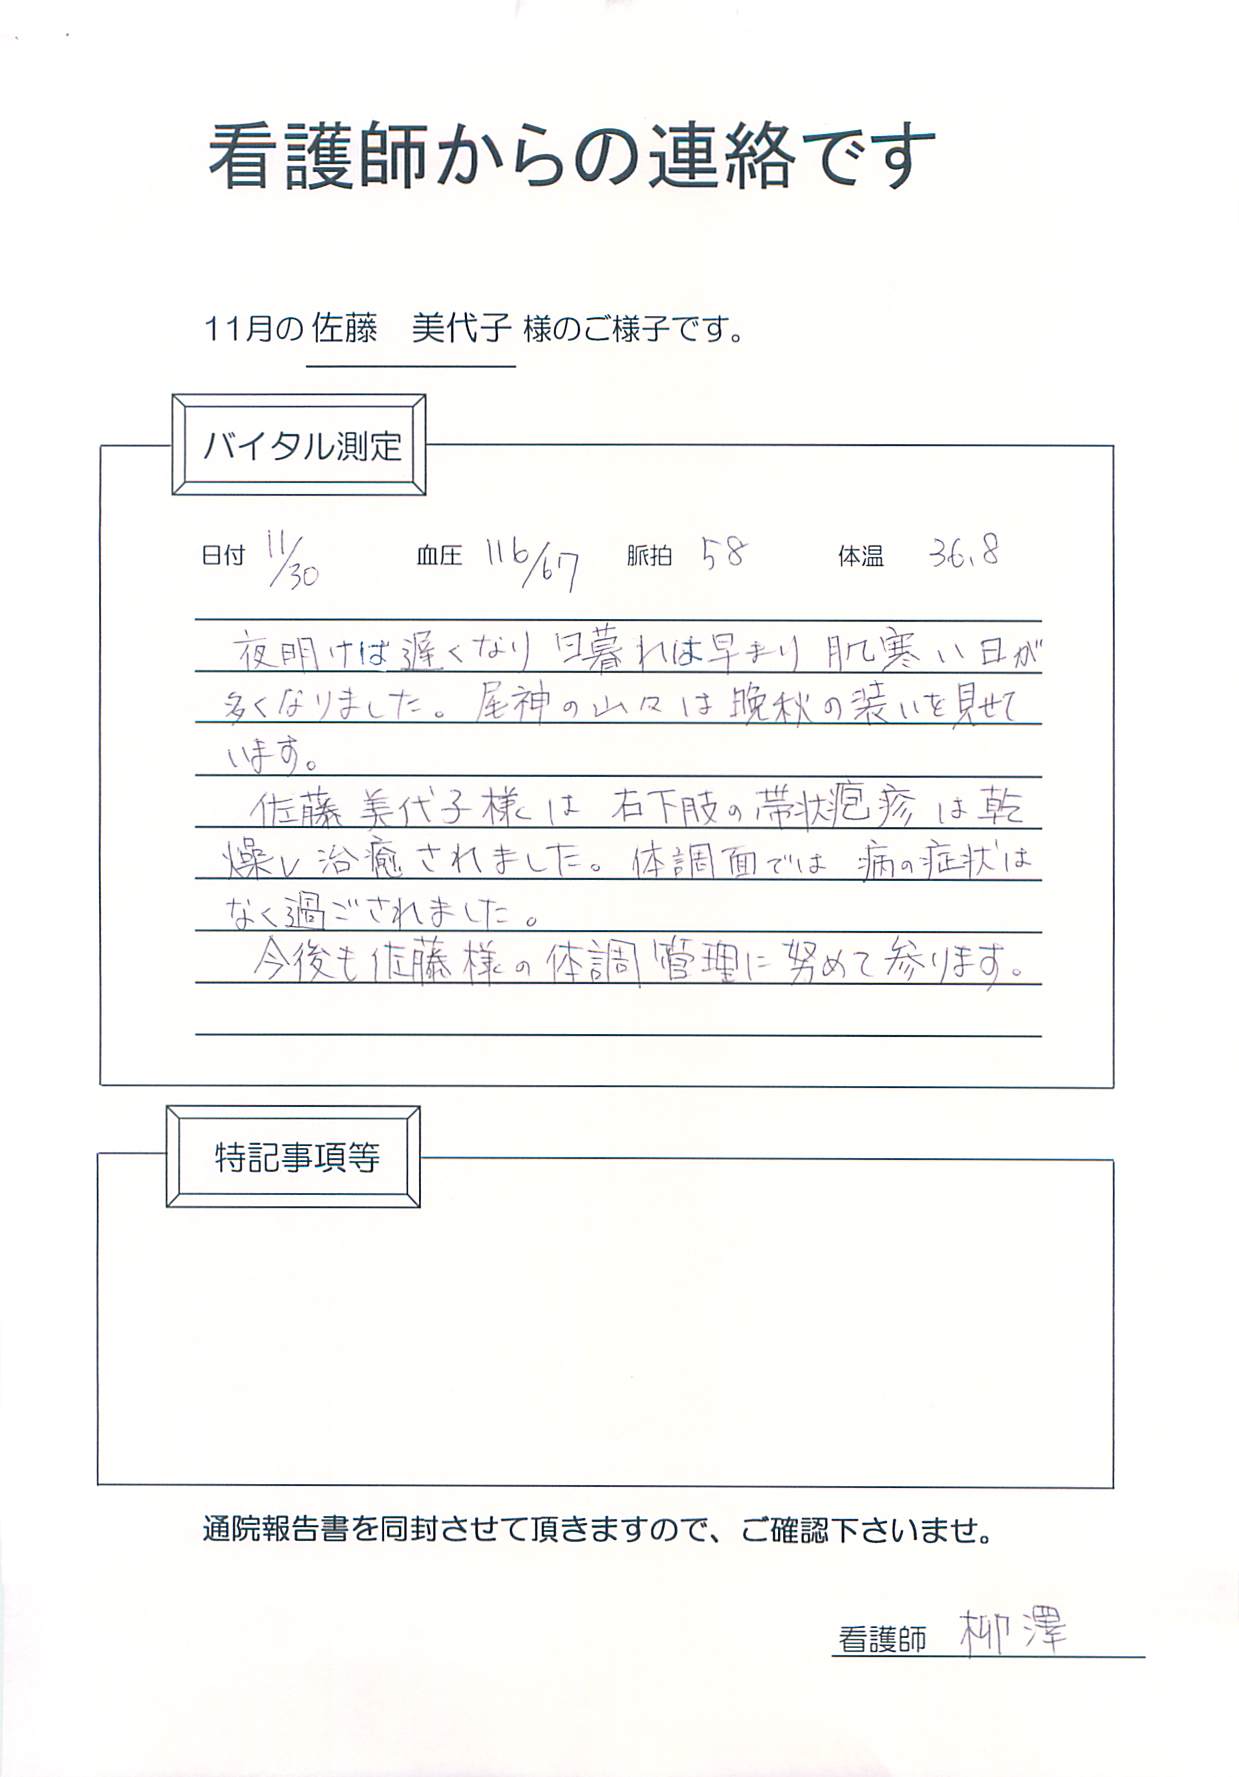 看護師からの連絡です
11月の 佐藤　美代子 様のご様子です。
バイタル測定
日付 11/30 血圧 116/67 脈拍 58 体温 36.8
夜明けは遅くなり 日暮れは早まり 肌寒い日が
多くなりました。尾神の山々は晩秋の装いを見せて
います。
佐藤美代子様は 右下肢の帯状疱疹は乾
燥し治癒されました。体調面では 病の症状は
なく過ごされました。
今後も佐藤様の体調管理に努めて参ります。
特記事項等
通院報告書を同封させて頂きますので、ご確認下さいませ。
看護師 柳澤